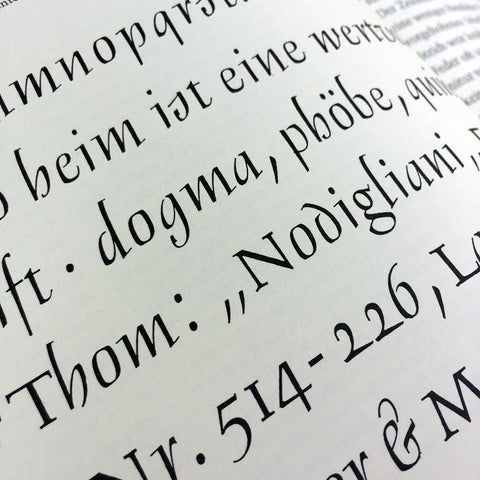 mnopqrst
beim ist eine wert
ft · dogma, phöbe, qui
Thom: „Nodigliani,
Nr. 514-226, Lo
er & M